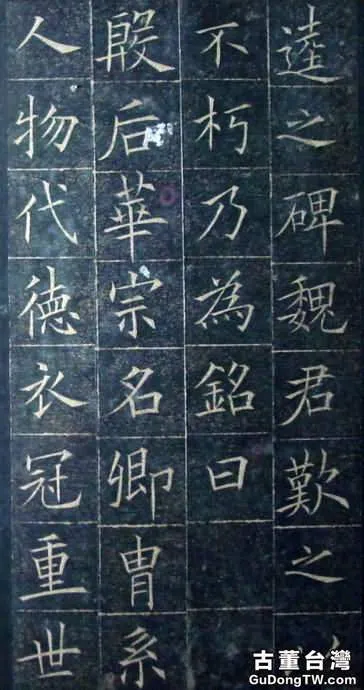 逵之碑魏君歎之
不朽乃為銘曰
殷后華宗名卿胄系
人物代徳衣冠重世
古董台灣
GuDongTW.com